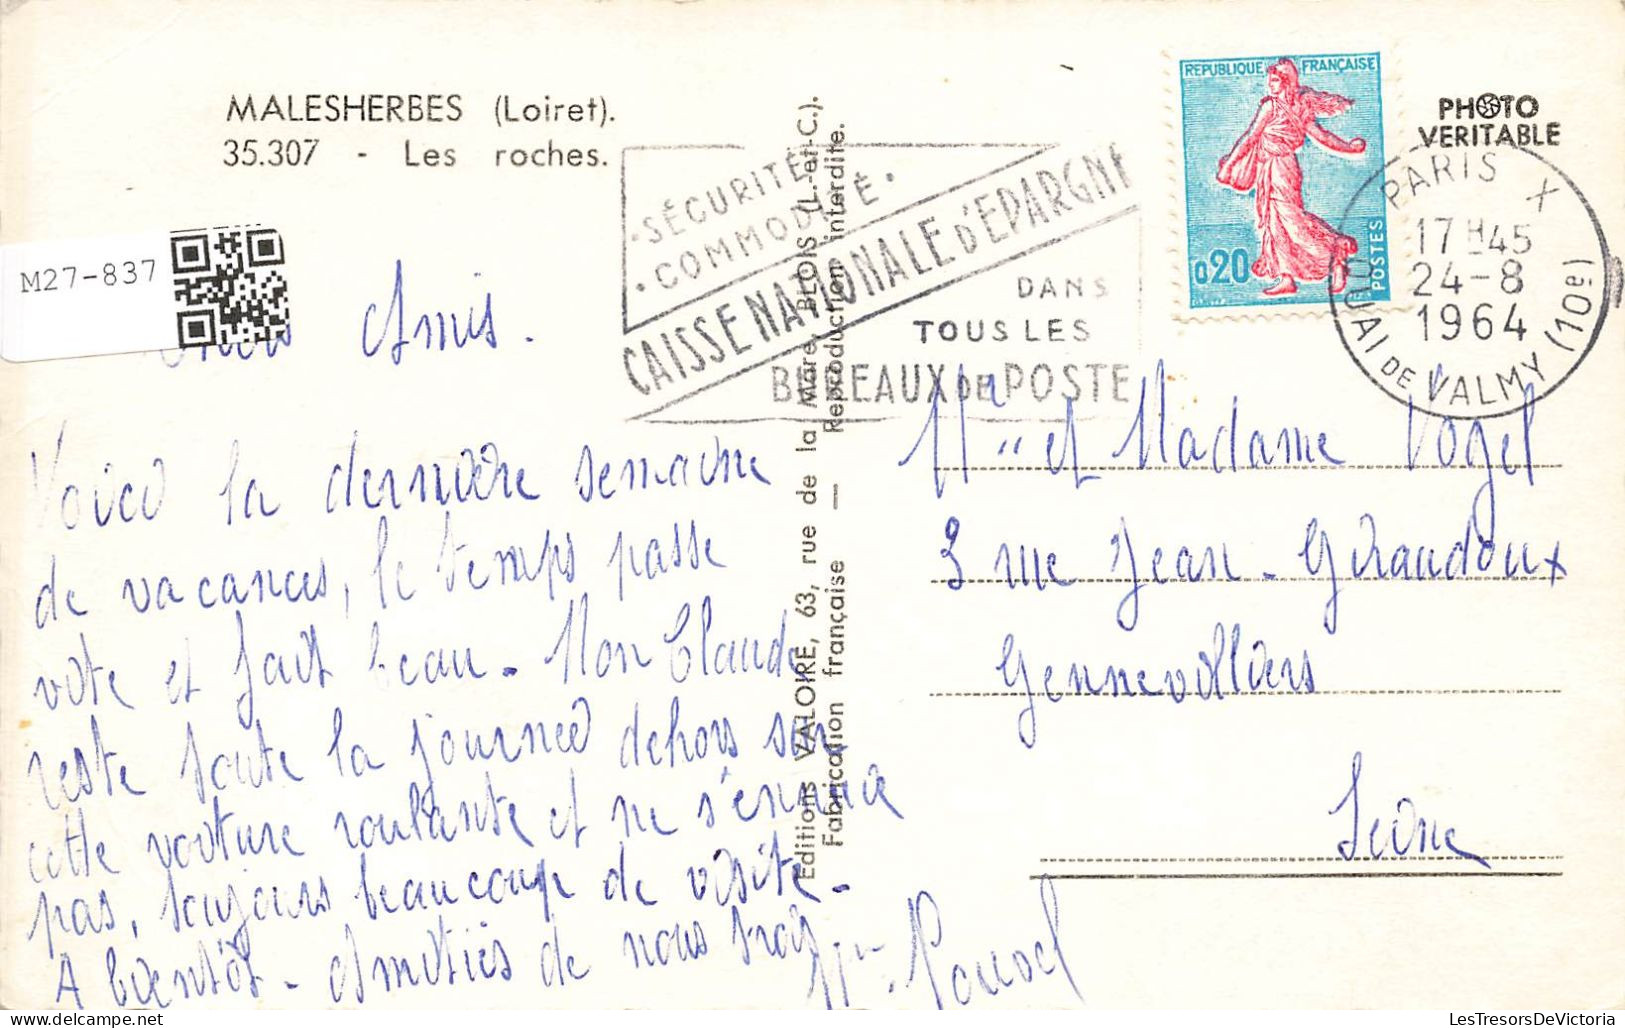 MALESHERBES (Loiret).
35.307 - Les roches.
M27-837
Amis.
Voici la dernière semaine
de vacances, le temps passe
vite et fait beau. Mon Claude
reste toute la journée dehors sur
cette voiture roulante et ne s'ennuie
pas, toujours beaucoup de visite.
A bientôt. Amitiés de nous trois
Editions VALOIRE, 63, rue de la Mare BLOIS (L.-et-C.).
Fabrication française — Reproduction interdite.
·SÉCURITÉ
·COMMODITÉ·
CAISSE NATIONALE D'ÉPARGNE
DANS
TOUS LES
BUREAUX DE POSTE
REPUBLIQUE FRANÇAISE
0,20
POSTES
PHOTO
VERITABLE
PARIS X
17 H 45
24-8
1964
QUAI DE VALMY (10e)
Mr et Madame Vogel
3 rue Jean-Giraudoux
Gennevilliers
Seine
LesTresorsDeVictoria